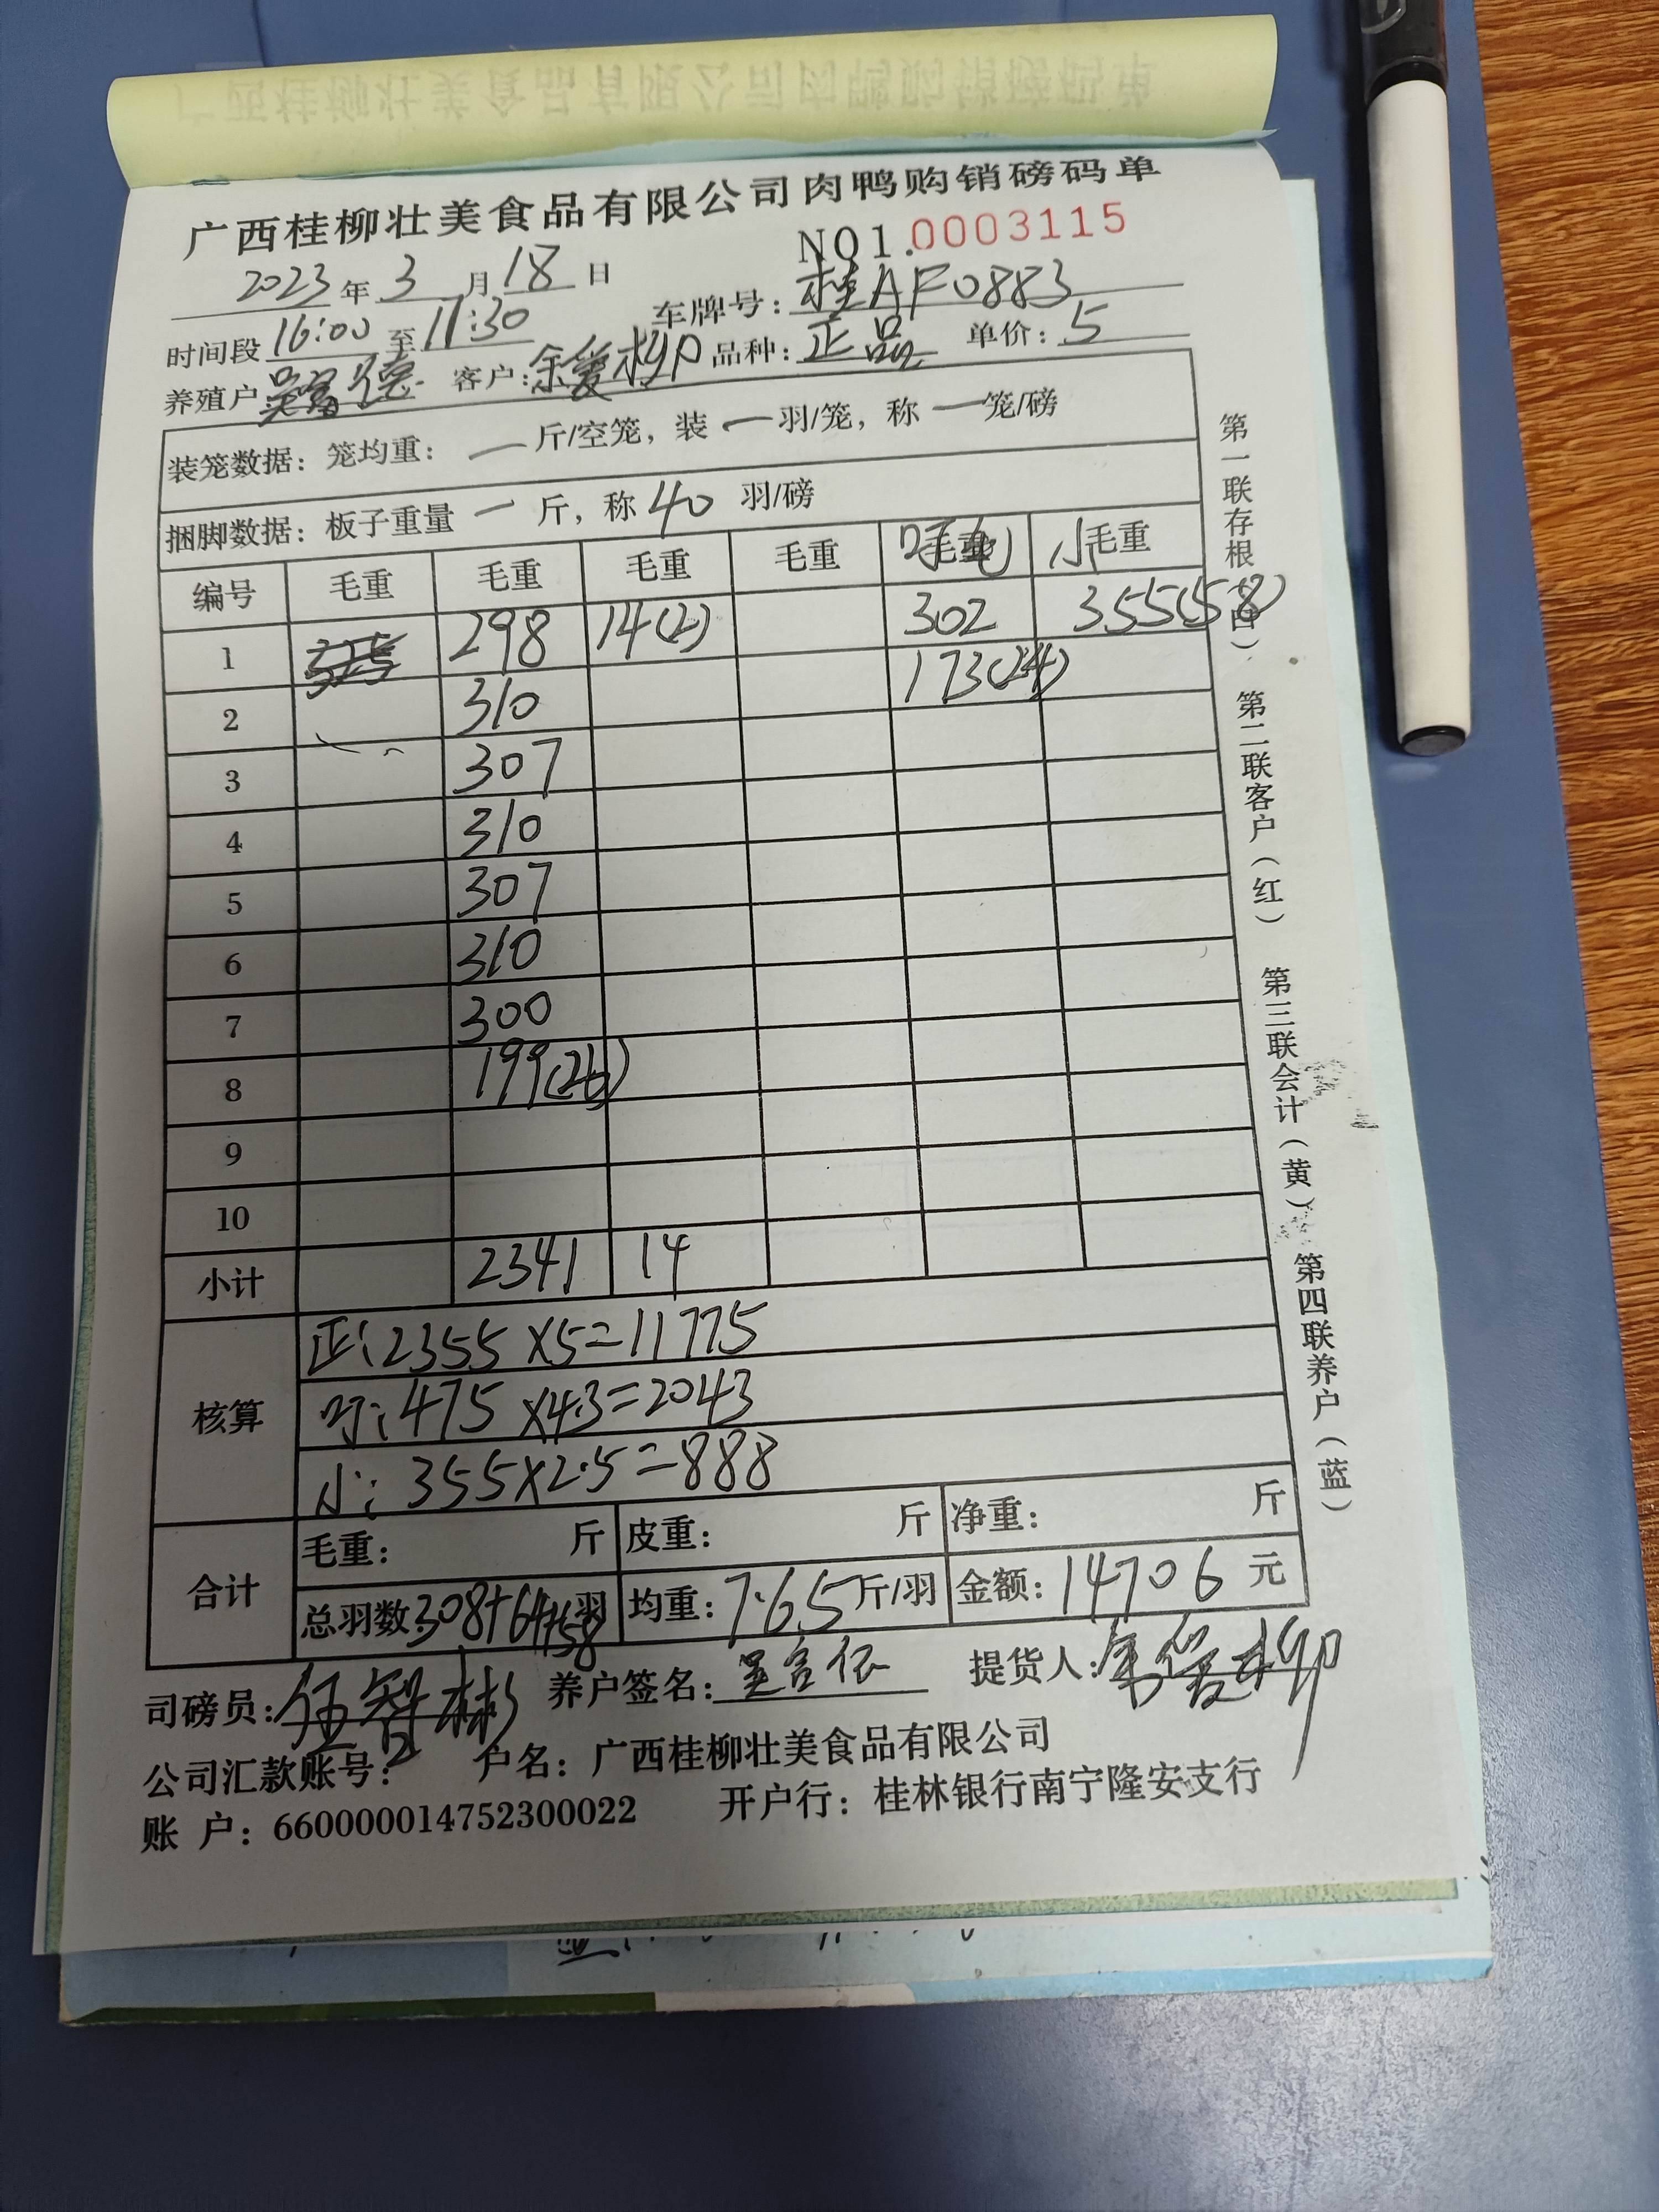 广西桂柳壮美食品有限公司肉鸭购销磅码单
NO1.0003115
2023年3月18日
车牌号：桂AF0883
时间段16:00至11:30
养殖户： 客户：余爱柳 品种：正品 单价：5
装笼数据：笼均重：一斤/空笼，装一羽/笼，称一笼/磅
捆脚数据：板子重量一斤，称40羽/磅
编号 毛重 毛重 毛重 毛重 毛重 小毛重
1 298 14(2) 302 355(58)
2 310 173(24)
3 307
4 310
5 307
6 310
7 300
8 199(26)
9
10
小计 2341 14
核算
正：2355×5=11775
475×4.3=2043
小：355×2.5=888
合计
毛重： 斤 皮重： 斤 净重： 斤
总羽数：308+64+58羽 均重：7.65斤/羽 金额：14706元
司磅员：伍智彬 养户签名： 提货人：余爱柳
公司汇款账号： 户名：广西桂柳壮美食品有限公司
账 户：660000014752300022 开户行：桂林银行南宁隆安支行
第一联存根（白） 第二联客户（红） 第三联会计（黄） 第四联养户（蓝）